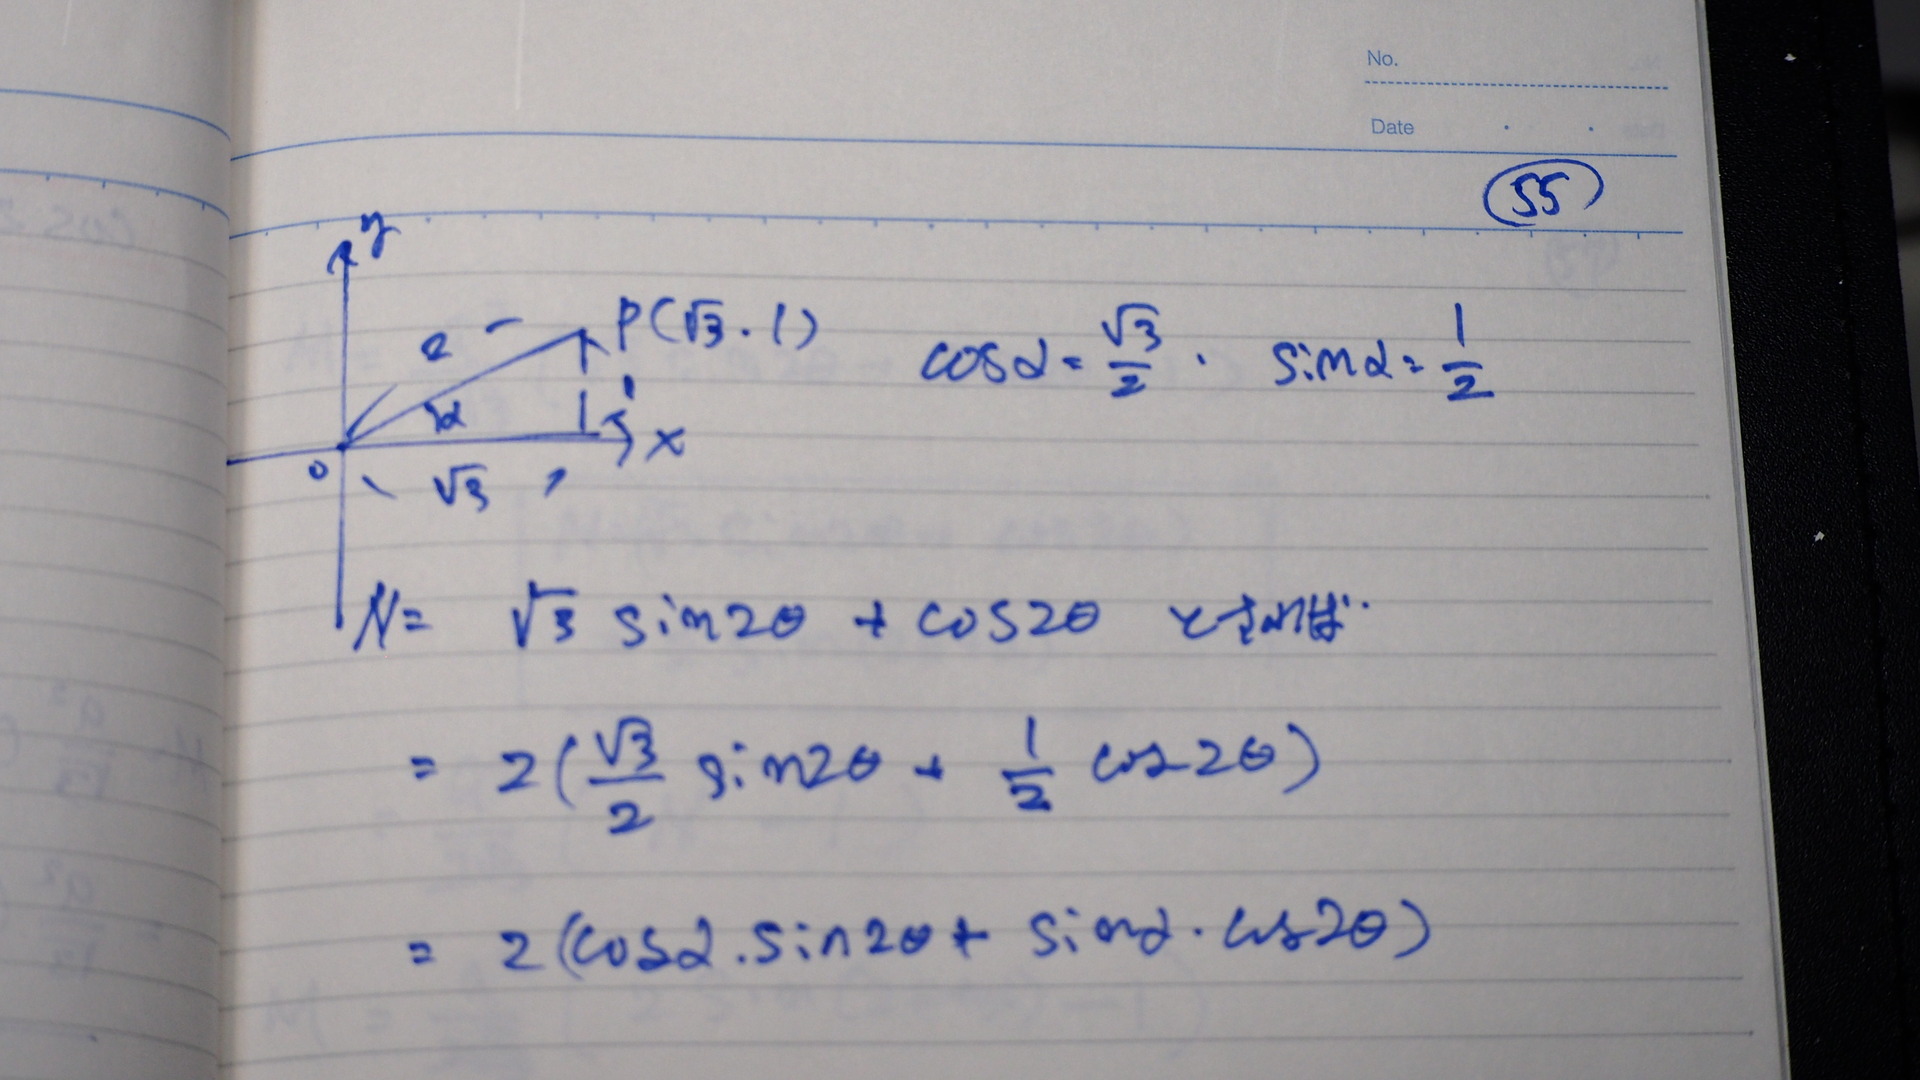 No.
Date
55
y
P(√3・1)
2
cosα=√3/2・ sinα=1/2
α
1
x
0
√3
N= √3 sin2θ + cos2θ とすれば・
= 2(√3/2 sin2θ + 1/2 cos2θ)
= 2(cosα・sin2θ+ sinα・cos2θ)